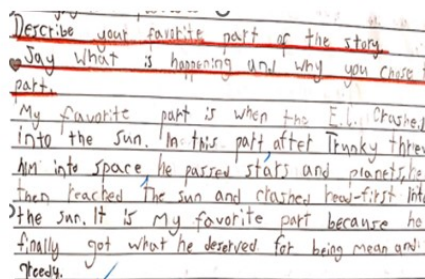 Describe your favorite part of the story.
Say what is happening and why you chose t
part.
My favorite part is when the E.L. Crashe
into the sun. In this part, after Trunky threw
him into space, he passed stars and planets, he
then reached the sun and crashed head-first into
the sun. It is my favorite part because he
finally got what he deserved for being mean and
greedy.